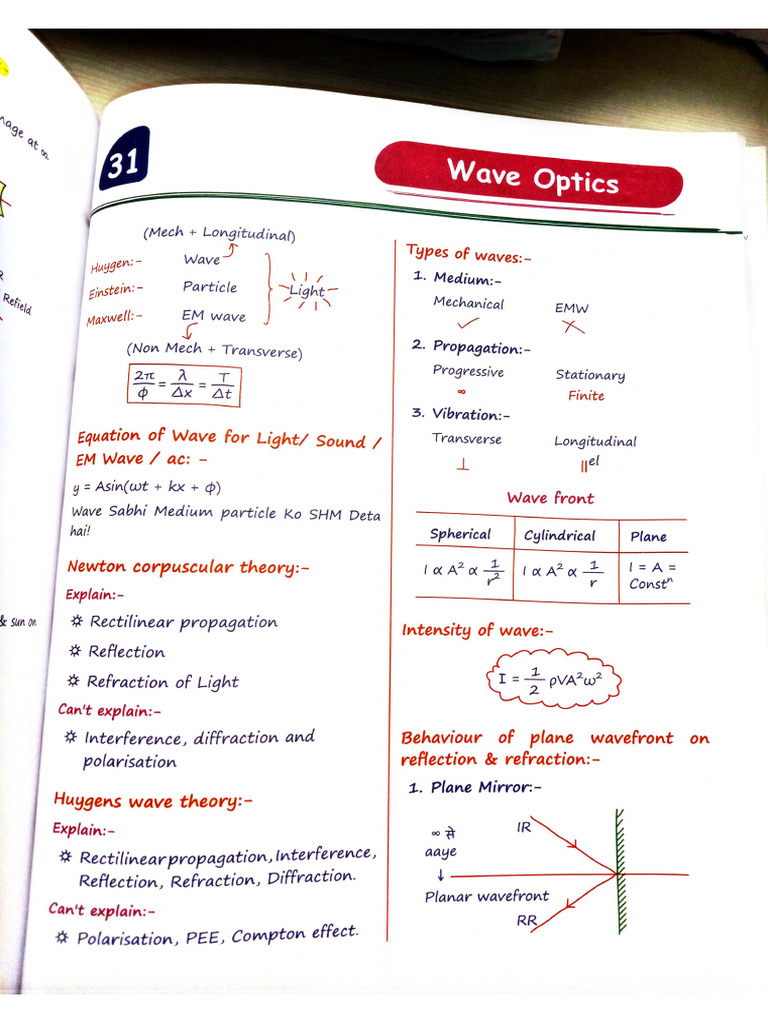 mage at ∞
R
Refield
& sun on
31
Wave Optics
(Mech + Longitudinal)
Huygen:- Wave
Einstein:- Particle
Light
Maxwell:- EM wave
(Non Mech + Transverse)
2π/ϕ = λ/Δx = T/Δt
Equation of Wave for Light/ Sound /
EM Wave / ac: -
y = Asin(ωt + kx + ϕ)
Wave Sabhi Medium particle Ko SHM Deta
hai!
Newton corpuscular theory:-
Explain:-
Rectilinear propagation
Reflection
Refraction of Light
Can't explain:-
Interference, diffraction and
polarisation
Huygens wave theory:-
Explain:-
Rectilinear propagation, Interference,
Reflection, Refraction, Diffraction.
Can't explain:-
Polarisation, PEE, Compton effect.
Types of waves:-
1. Medium:-
Mechanical EMW
✓ ✗
2. Propagation:-
Progressive Stationary
∞ Finite
3. Vibration:-
Transverse Longitudinal
⊥ ||el
Wave front
Spherical Cylindrical Plane
I ∝ A² ∝ 1/r² I ∝ A² ∝ 1/r I = A =
Constⁿ
Intensity of wave:-
I = 1/2 ρVA²ω²
Behaviour of plane wavefront on
reflection & refraction:-
1. Plane Mirror:-
IR
∞ से
aaye
↓
Planar wavefront
RR